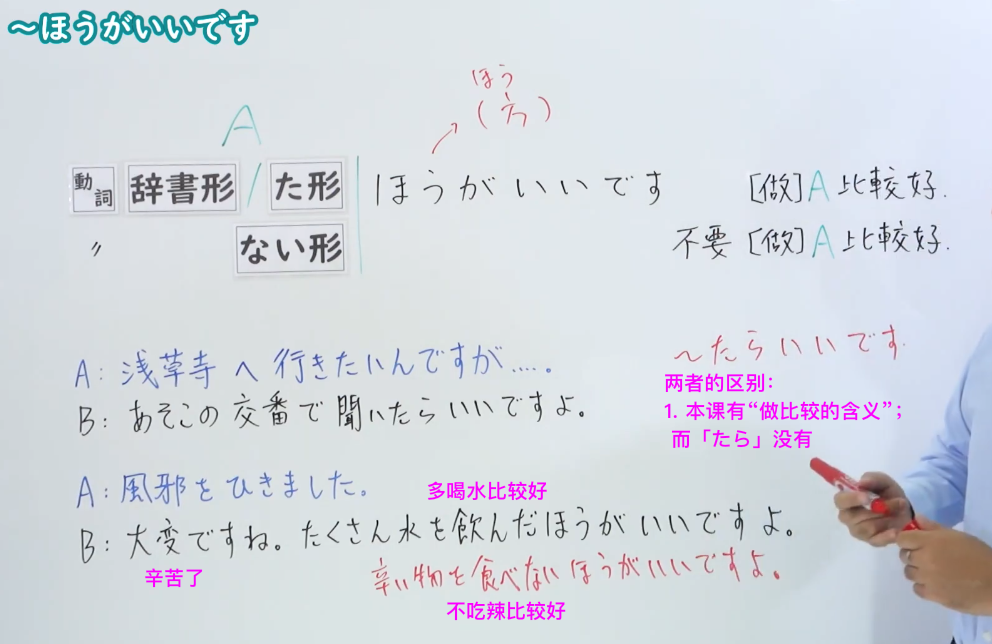 ～ほうがいいです
ほう
(方)
A
動詞 辞書形 / た形 ほうがいいです [做]A比較好.
〃 ない形 不要[做]A比較好.
～たらいいです.
A: 浅草寺へ行きたいんですが.....。
B: あそこの交番で聞いたらいいですよ。
两者的区别：
1. 本课有“做比较的含义”；
而「たら」没有
A: 風邪をひきました。
多喝水比较好
B: 大変ですね。たくさん水を飲んだほうがいいですよ。
辛苦了
辛い物を食べないほうがいいですよ。
不吃辣比较好